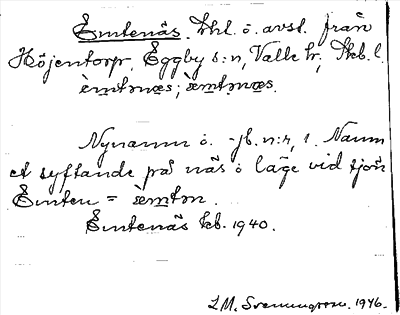 Emtenäs. Lhl. ö. avst. från
Höjentorp, Eggby s:n, Valle hr, Skb. l.
èmtǝnæs; æ̀mtǝnæs.
Nynamn ö. -jb. n:r, 1. Namn
et syftande på näs ö läge vid sjön
Emten = æ̀mtǝn.
Emtenäs kb. 1940.
1946.